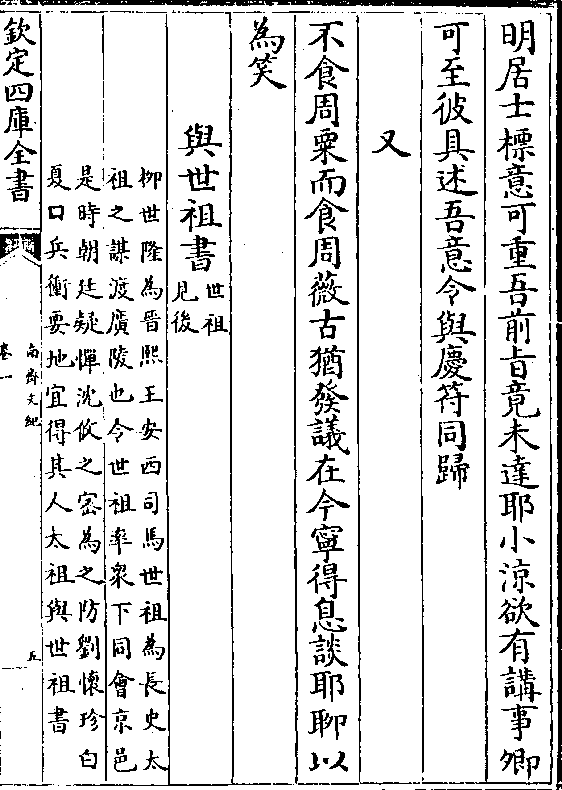 明居士標意可重吾前㫖竟未達耶小涼欲有講事卿
可至彼具述吾意令與慶符同歸
又
不食周粟而食周薇古猶發議在今寧得息談耶聊以
為笑
與世祖書世祖
見後
柳世隆為晉熙王安西司馬世祖為長史太
祖之謀渡廣陵也令世祖率衆下同會京邑
是時朝廷疑憚沈攸之密為之防劉懷珍白
夏口兵衝要地宜得其人太祖與世祖書
欽定四庫全書
南齊文紀
卷一
五